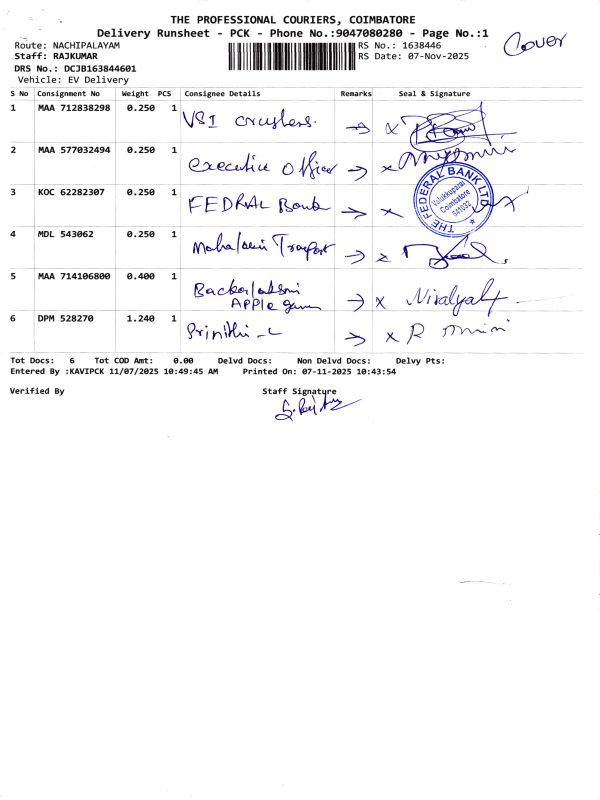 THE PROFESSIONAL COURIERS, COIMBATORE
Delivery Runsheet - PCK - Phone No.:9047080280 - Page No.:1
Route: NACHIPALAYAM RS No.: 1638446 Cover
Staff: RAJKUMAR RS Date: 07-Nov-2025
DRS No.: DCJB163844601
Vehicle: EV Delivery
S No Consignment No Weight PCS Consignee Details Remarks Seal & Signature
1 MAA 712838298 0.250 1 VSI crushers.
2 MAA 577032494 0.250 1 Executive Officer
3 KOC 62282307 0.250 1 FEDRAL Bank THE FEDERAL BANK LTD Coimbatore
4 MDL 543062 0.250 1
5 MAA 714106800 0.400 1
APPle
6 DPM 528270 1.240 1
Tot Docs: 6 Tot COD Amt: 0.00 Delvd Docs: Non Delvd Docs: Delvy Pts:
Entered By :KAVIPCK 11/07/2025 10:49:45 AM Printed On: 07-11-2025 10:43:54
Verified By Staff Signature